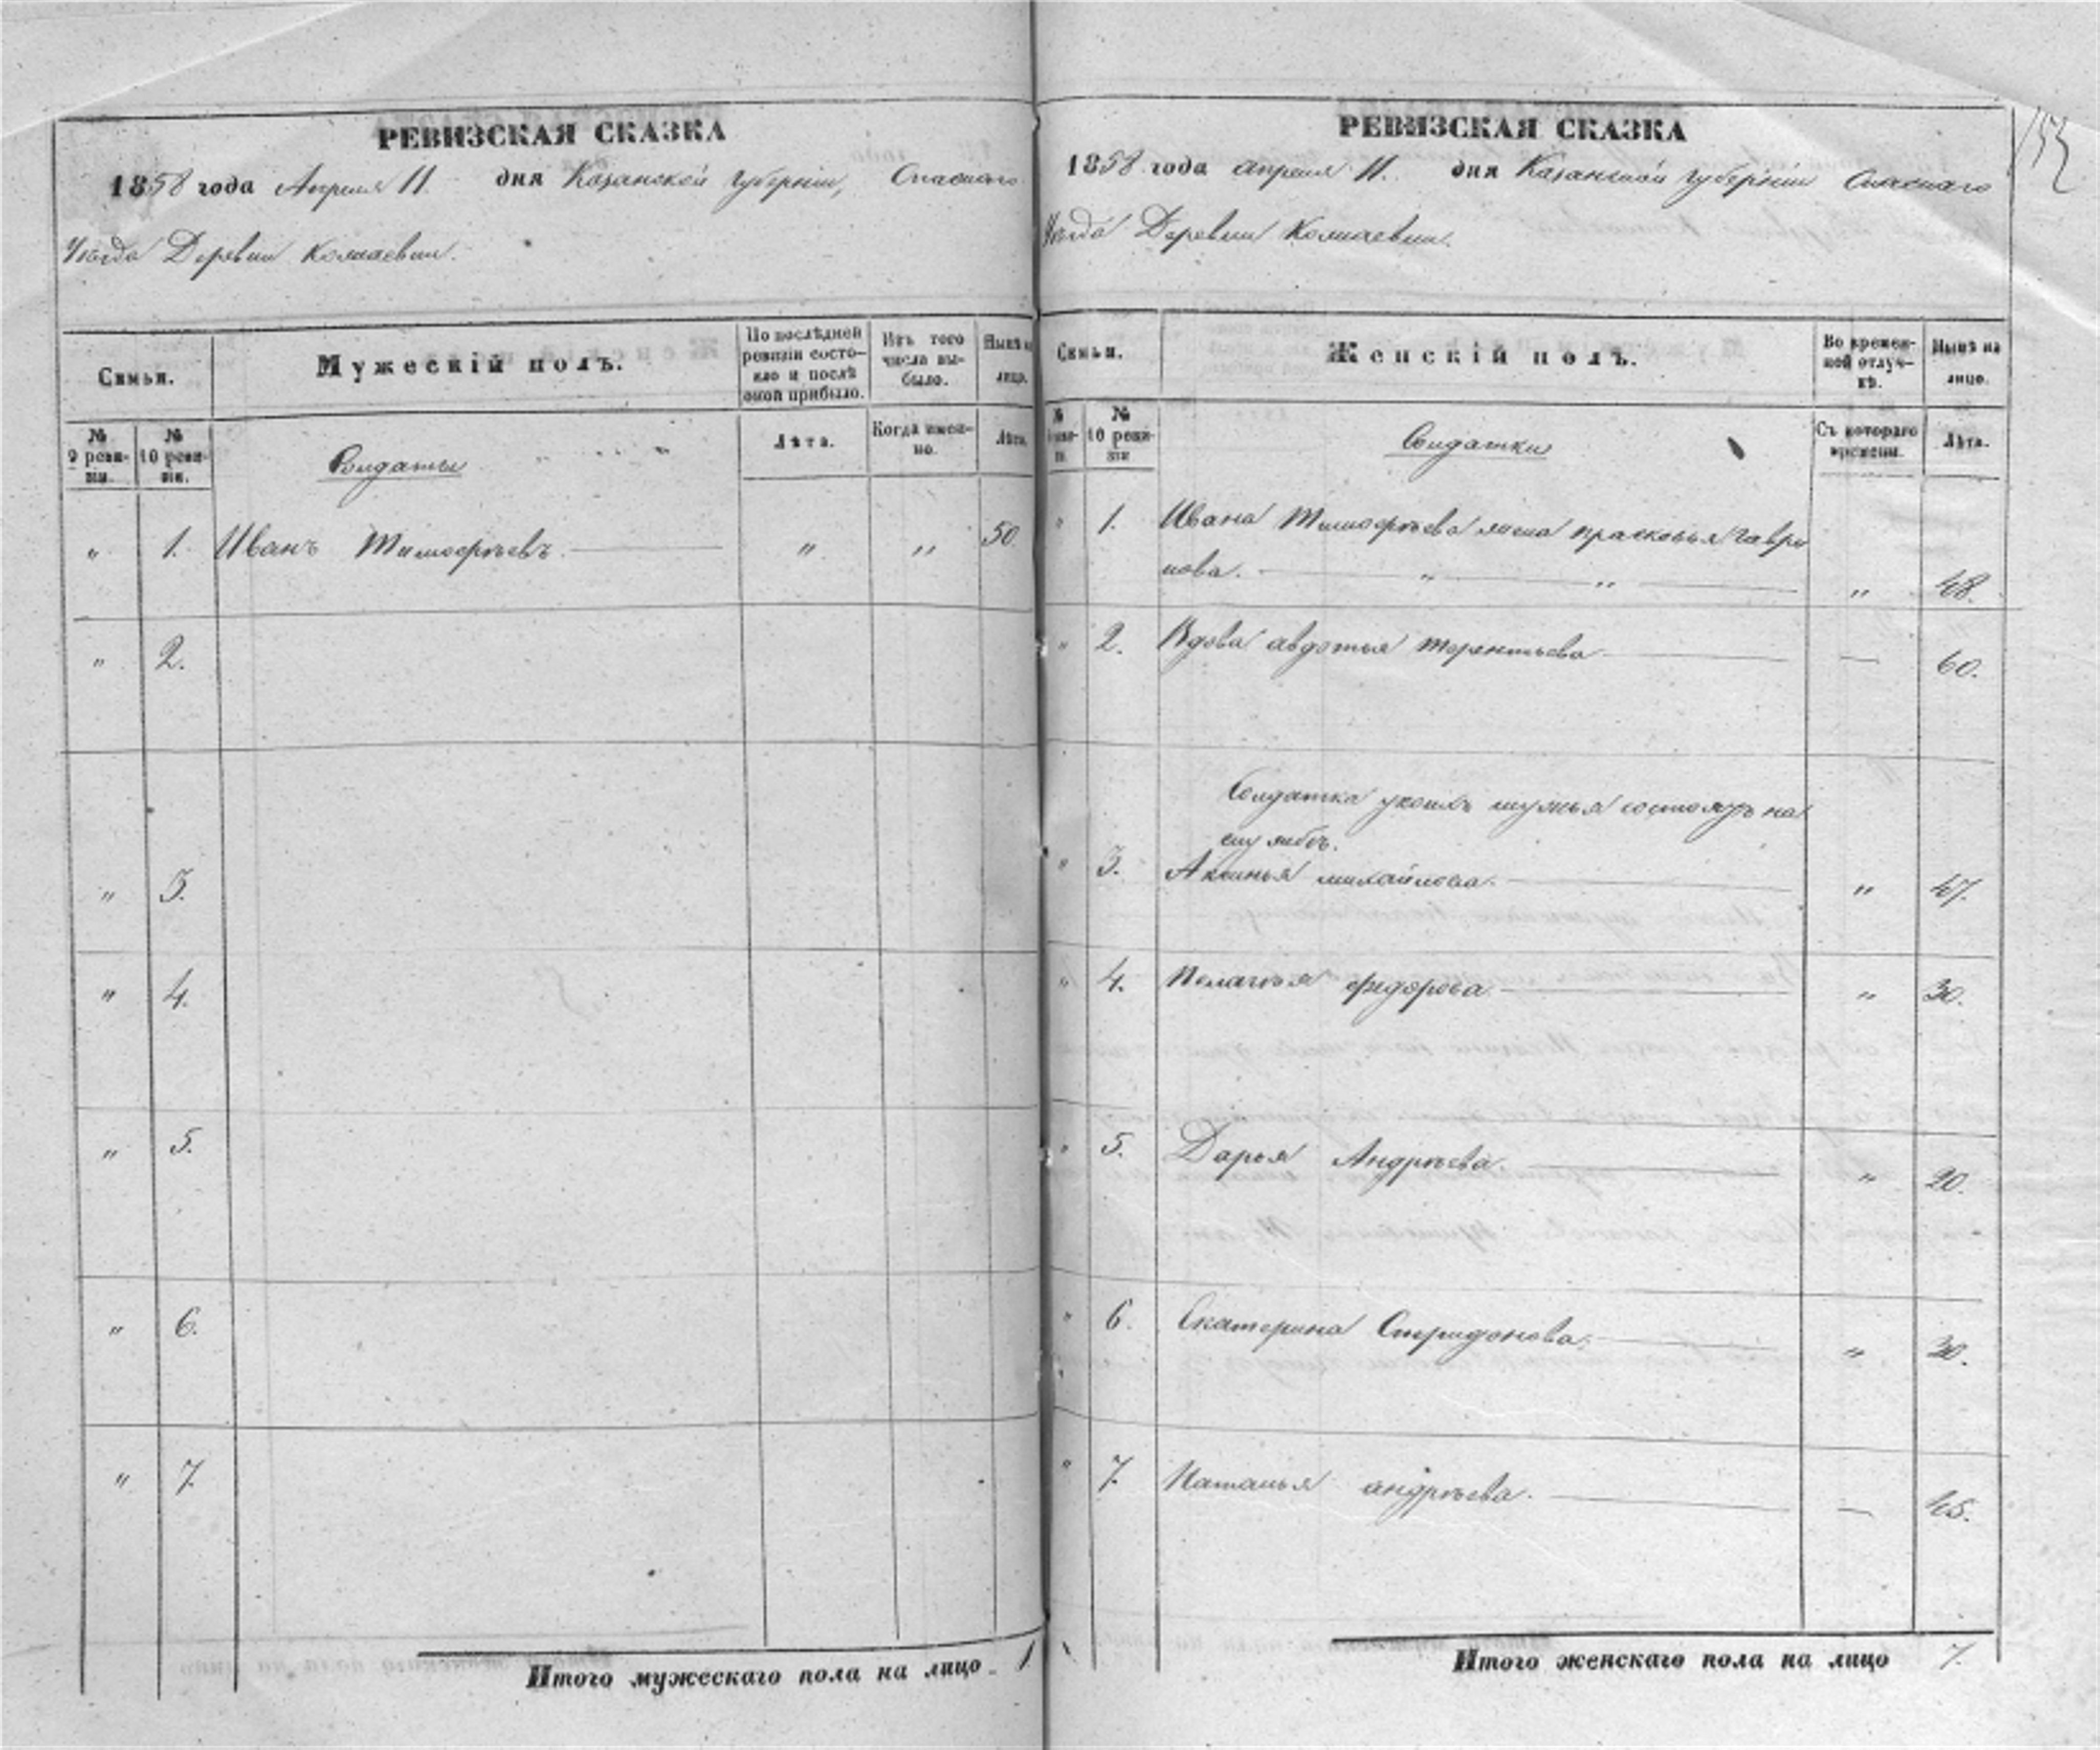 РЕВИЗСКАЯ СКАЗКА
1858 года Апреля 11. дня Казанской губерніи, Спаскаго
Уѣзда Деревни Колмаевки.
Семьи.
Мужескій полъ.
По послѣдней ревизіи состояло и послѣ оной прибыло.
Изъ того числа выбыло.
Нынѣ на лицо.
№ 9 ревизіи.
№ 10 ревизіи.
Лѣта.
Когда именно.
Лѣта.
Солдаты
" 1. Иванъ Тимофѣевъ. " " 50.
" 2.
" 3.
" 4.
" 5.
" 6.
" 7.
Итого мужескаго пола на лицо 1
РЕВИЗСКАЯ СКАЗКА
1858 года апреля 11. дня Казанской губерніи Спаскаго
Уѣзда Деревни Колмаевки.
Семьи.
Женскій полъ.
Во временной отлучкѣ.
Нынѣ на лицо.
№ 9 ревизіи
№ 10 ревизіи
Съ котораго времени.
Лѣта.
Солдатки
" 1. Ивана Тимофѣева жена прасковья Гаври
лова. " " " 48.
" 2. Вдова авдотья терентьева — 60.
Солдатка укоихъ мужья состоятъ на
службѣ.
" 3. Аксинья михайлова. " 47.
" 4. Пелагѣя федорова. " 30.
" 5. Дарья Андрѣева. " 20.
" 6. Екатерина Спиридонова. " 30.
" 7. Наталья андрѣева. — 45.
Итого женскаго пола на лицо 7.